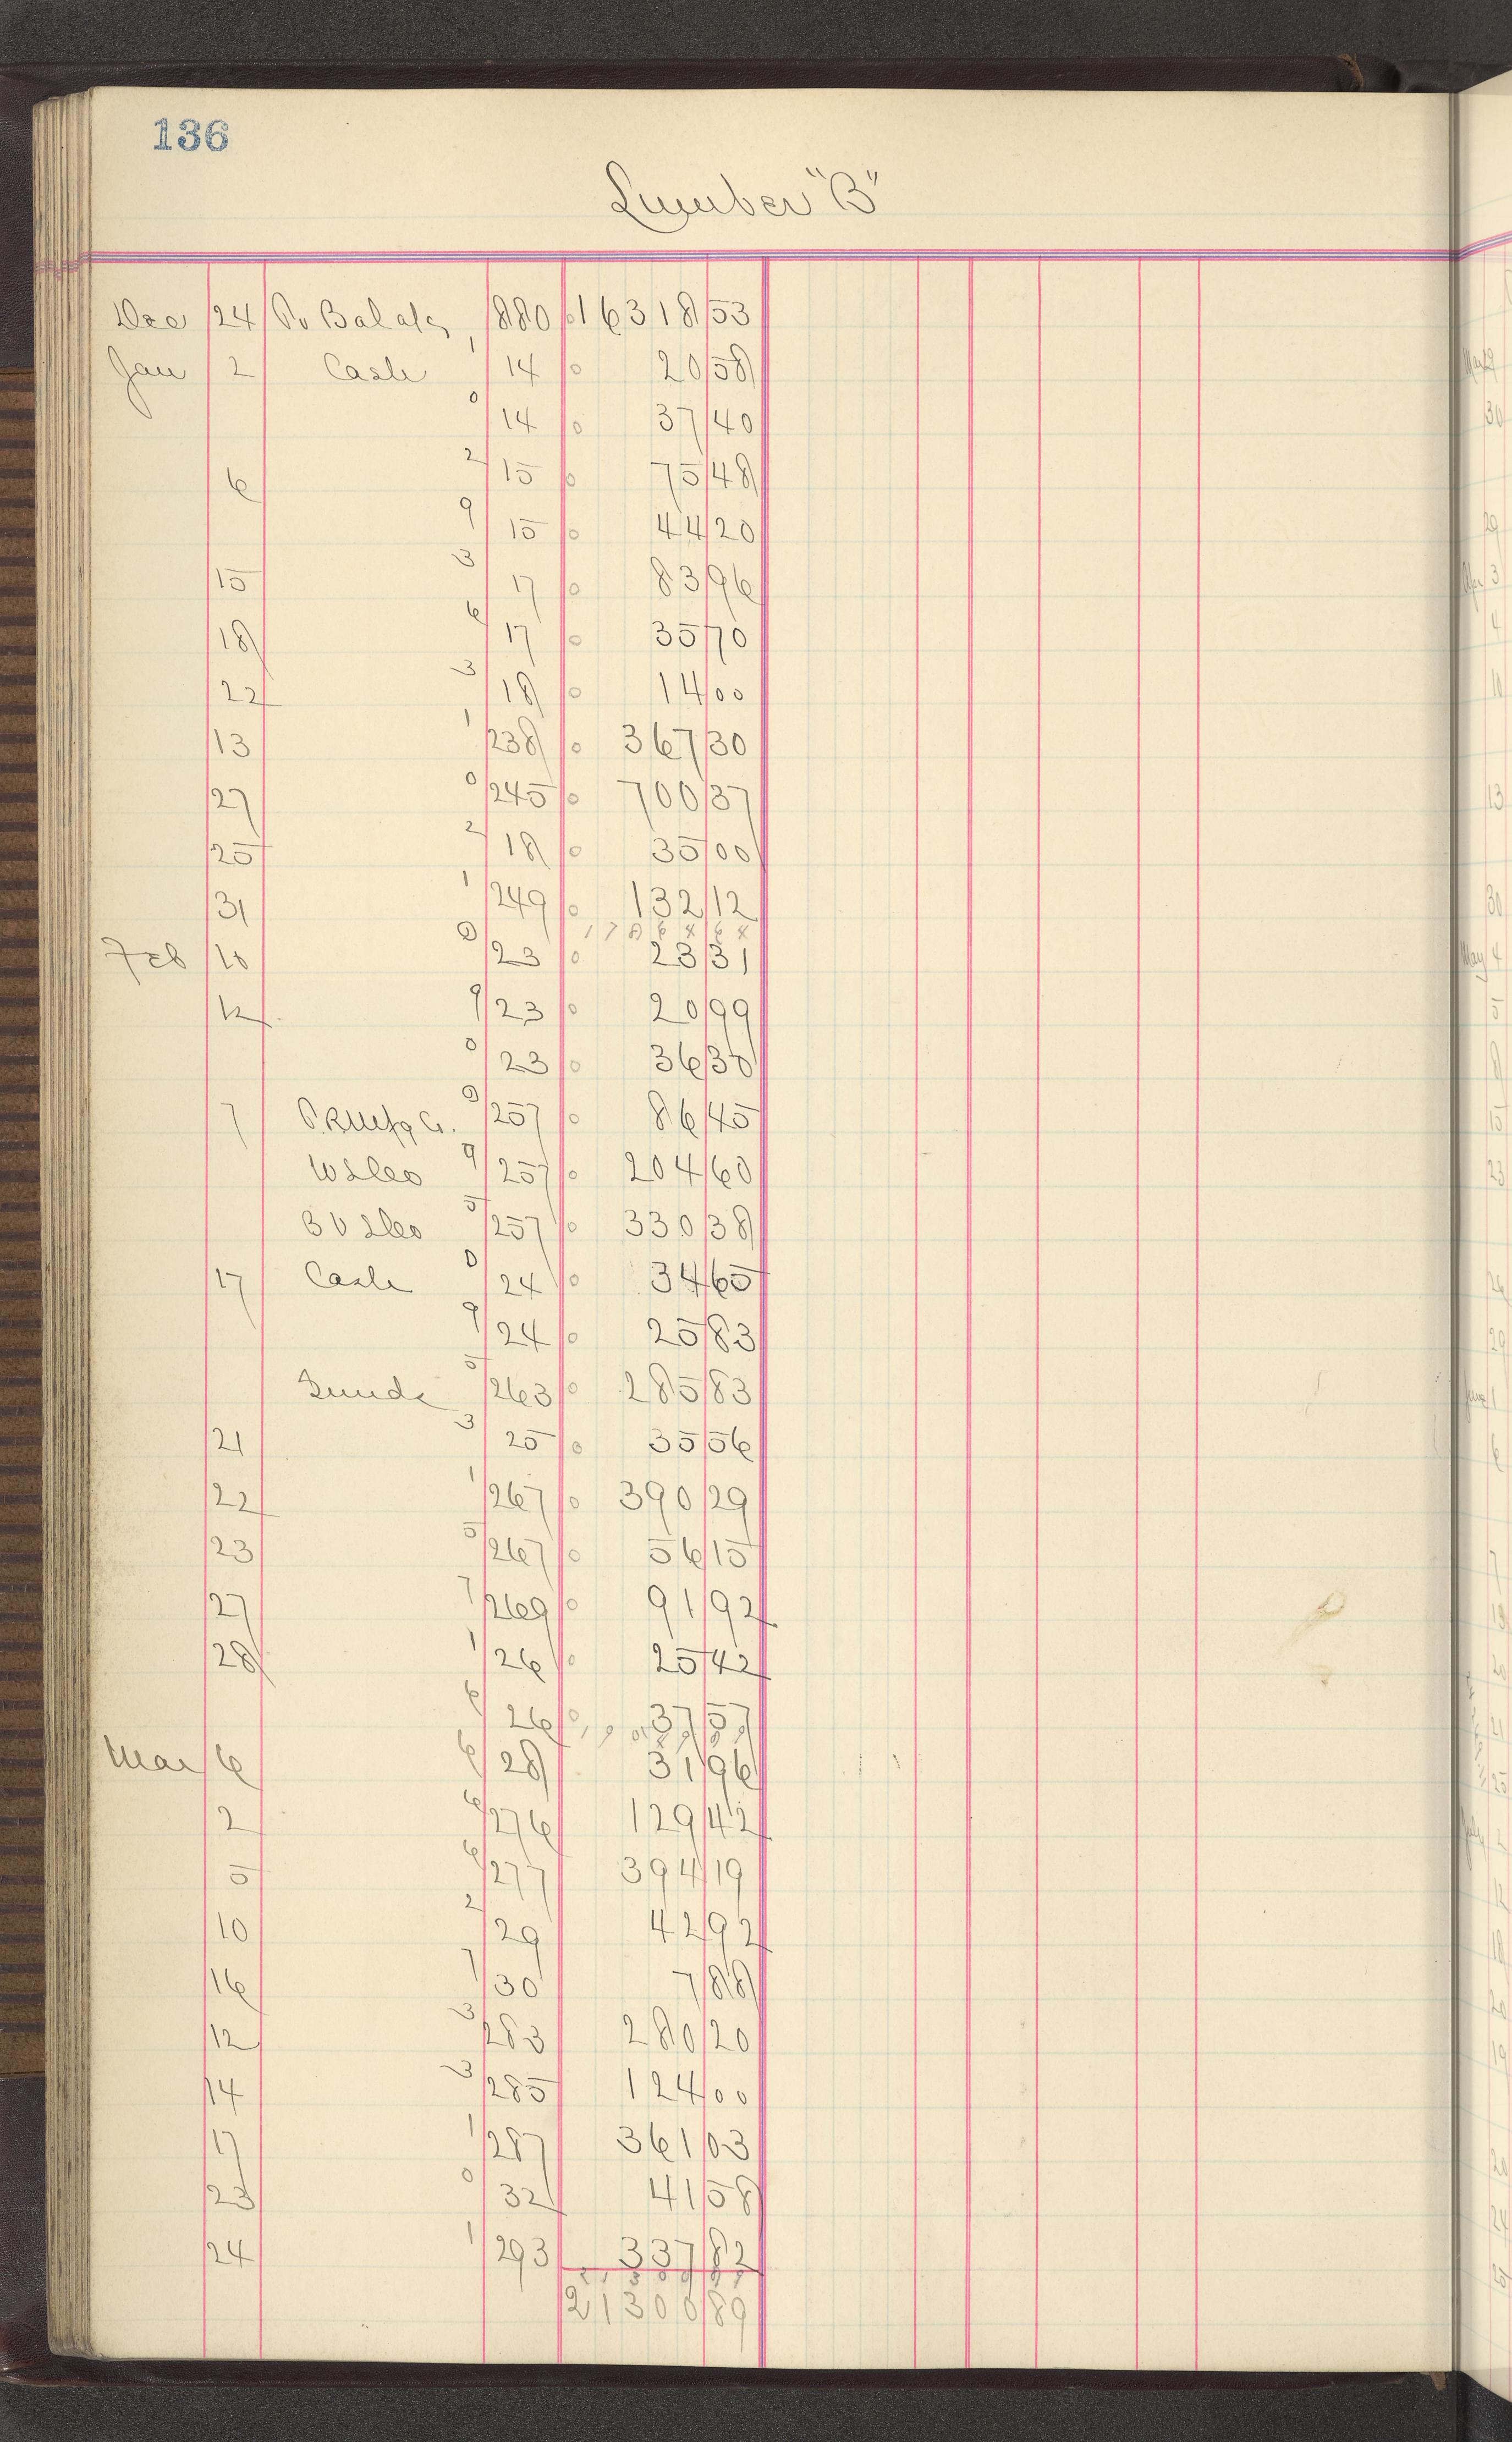 136
Lumber "B"
Dec 24 880 16318 53
Jan 2 Cash 1 14 20 58
0 14 37 40
6 2 15 75 48
9 15 44 20
15 3 17 83 96
18 6 17 35 70
22 3 18 14 00
13 1 238 367 30
27 0 245 700 37
25 2 18 35 00
31 1 249 132 12
Feb 10 23 23 31
12 9 23 20 99
0 23 36 30
7 257 86 45
9 257 204 60
5 257 330 38
17 Cash 0 24 34 65
9 24 25 83
5 263 285 83
21 3 25 35 56
22 1 267 390 29
23 5 267 56 15
27 7 269 91 92
28 1 26 25 42
6 26 37 57
Mar 6 6 28 31 96
2 6 276 129 42
5 6 277 394 19
10 2 29 42 92
16 7 30 7 88
12 3 283 280 20
14 3 285 124 00
17 1 287 361 03
23 0 32 41 58
24 1 293 337 82
21300 89